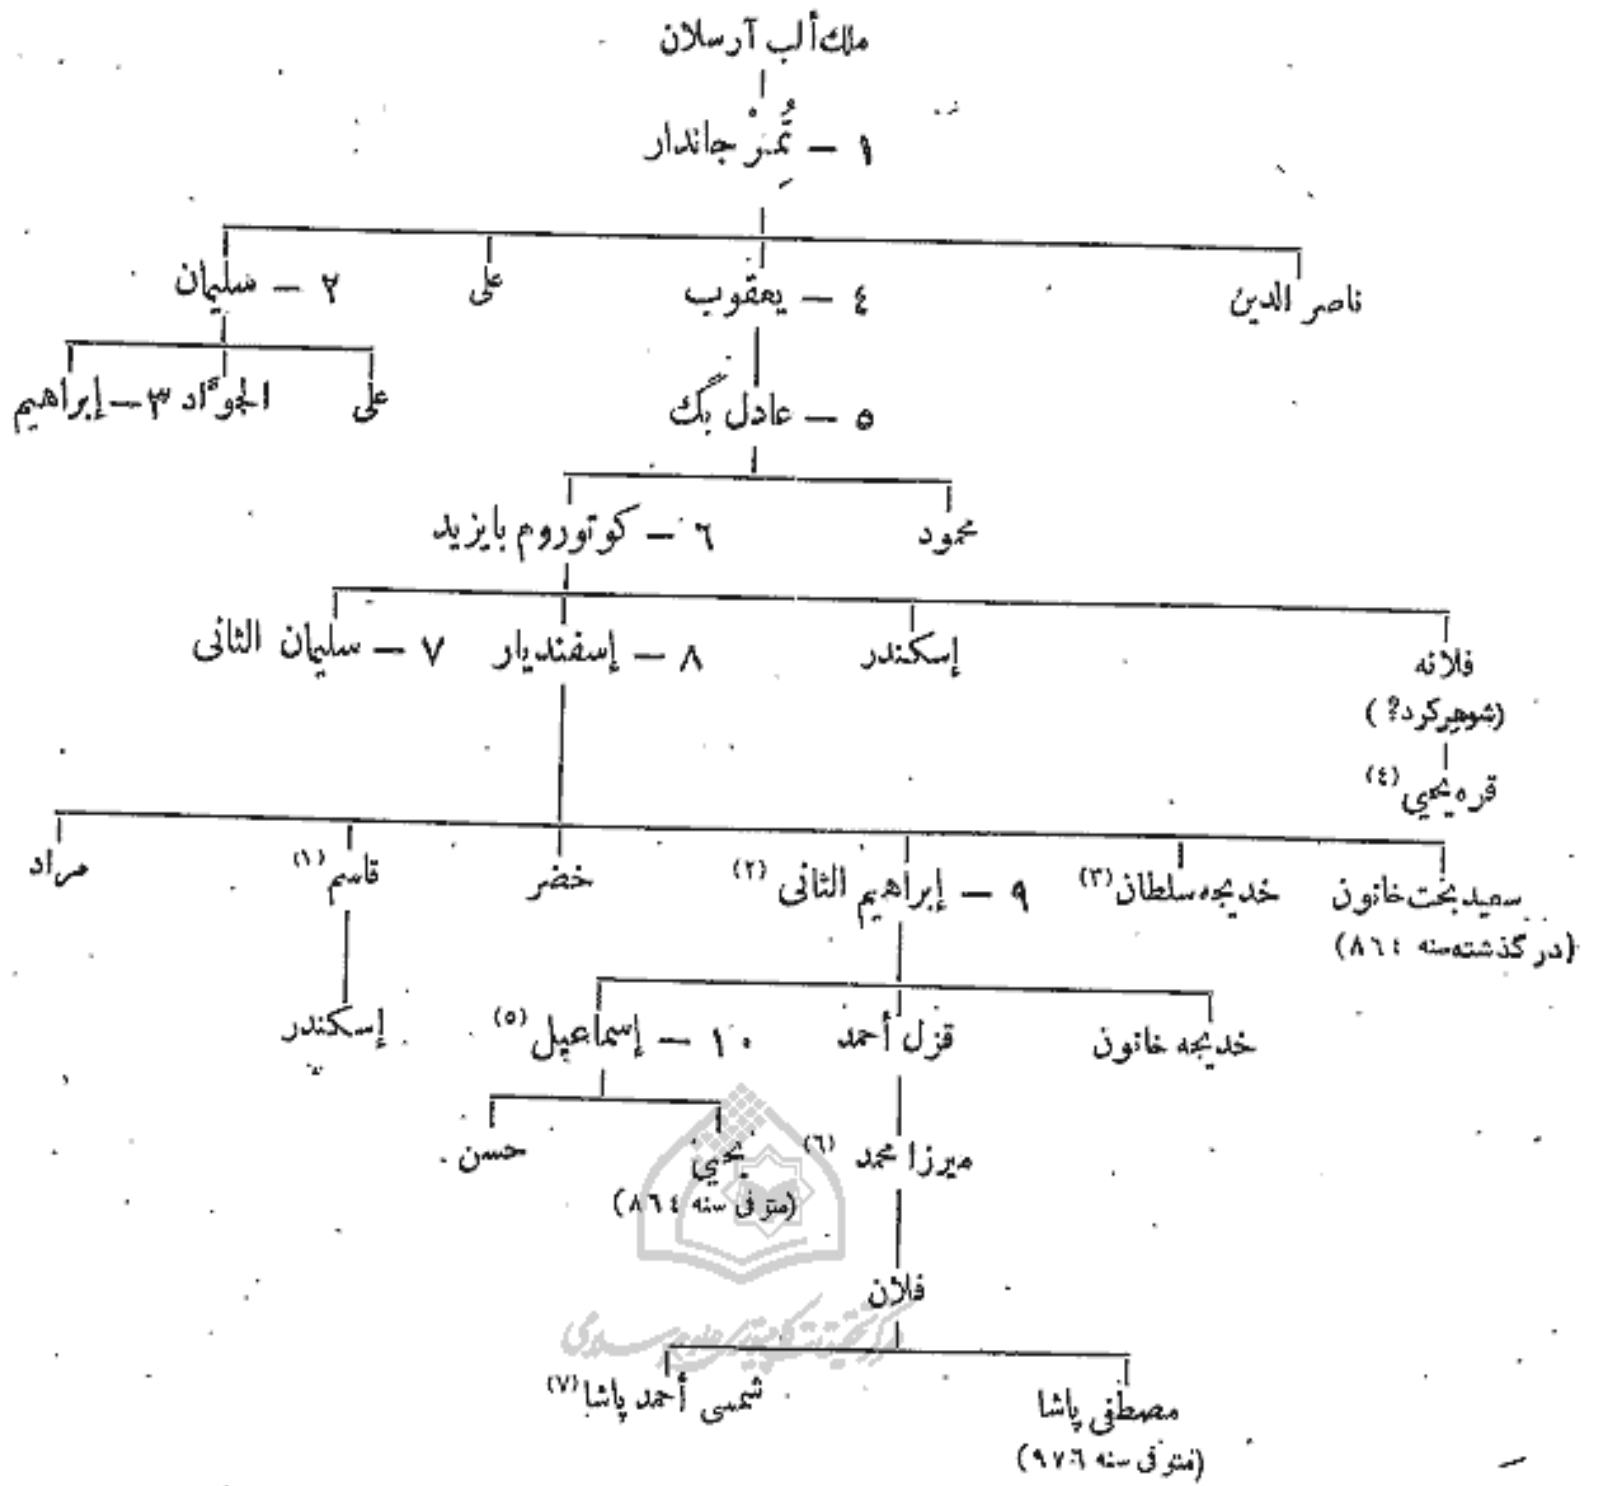 ملك ألب آرسلان
١ – تُمِنْر جاندار
ناصر الدين
٤ – يعقوب
على
٢ – سليمان
٥ – عادل بگ
على
الجوّاد
٣ – إبراهيم
محمود
٦ – كوتوروم بايزيد
فلانه
(شوهر كرد؟)
قره يحيي (٤)
إسكندر
٨ – إسفنديار
٧ – سليمان الثانى
سعيد بخت خاتون
(در گذشته سنه ٨٦٤)
خديجه سلطان (٣)
٩ – إبراهيم الثانى (٢)
خضر
قاسم (١)
مراد
خديجه خاتون
قزل أحمد
١٠ – إسماعيل (٥)
إسكندر
ميرزا محمد (٦)
يحيي
(متوفى سنه ٨٦٤)
حسن
فلان
مصطفى پاشا
(متوفى سنه ٩٧٦)
شمسى أحمد پاشا (٧)